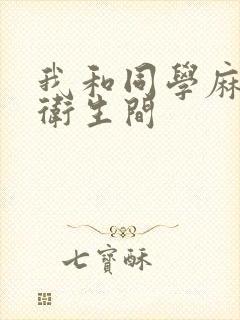 我和同學麻
衛生間
七寶酥